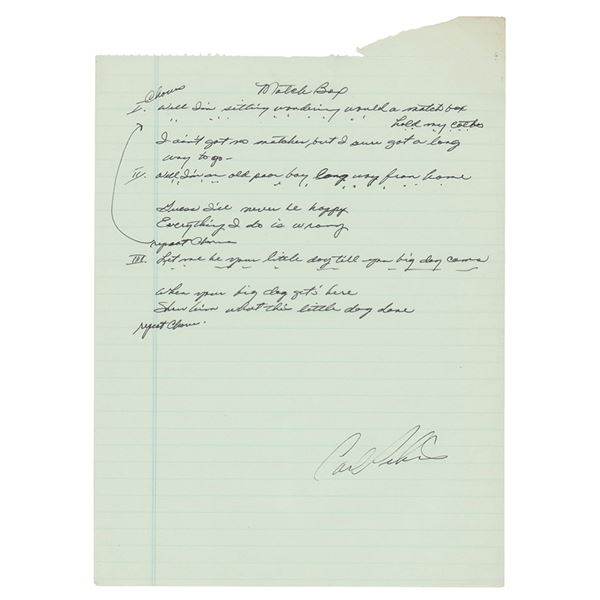 Match Box
Chorus
I. Well I'm sitting wondering would a match box
hold my clothes
I ain't got no matches, but I sure got a long
way to go -
IV. Well I'm an old poor boy long way from home
Guess I'll never be happy
Everything I do is wrong
repeat Chorus
III. Let me be your little dog till your big dog comes
When your big dog get's here
Show him what this little dog done
repeat Chorus.
Carl Perkins